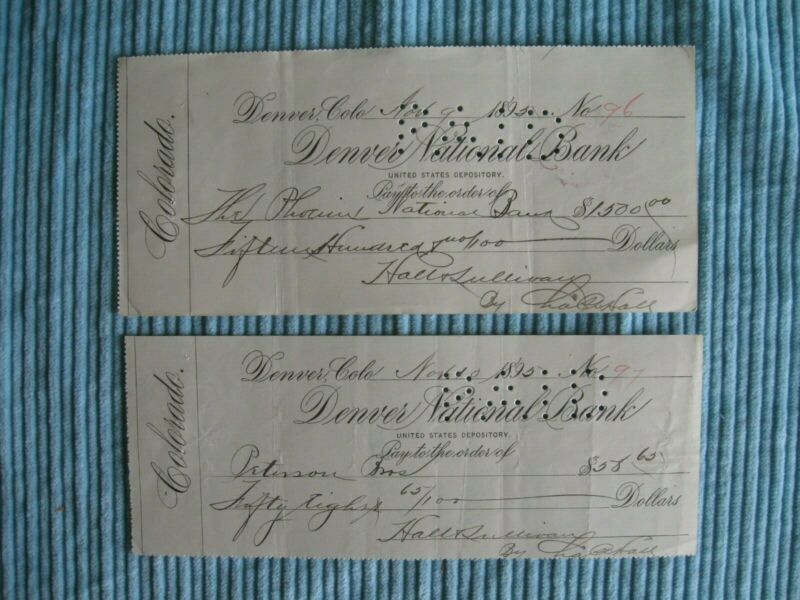 Colorado.
Denver, Colo Nov 9 1895 No. 96
Denver National Bank
UNITED STATES DEPOSITORY.
Pay to the order of
The Phoenix National Bank $1500.00
Fifteen Hundred no/100 Dollars
Hall & Sullivan
By Chas Hall
Colorado.
Denver, Colo Nov 1895 No. 97
Denver National Bank
UNITED STATES DEPOSITORY.
Pay to the order of
Peterson Bros $58 65
Fifty Eight 65/100 Dollars
Hall & Sullivan
By Chas Hall